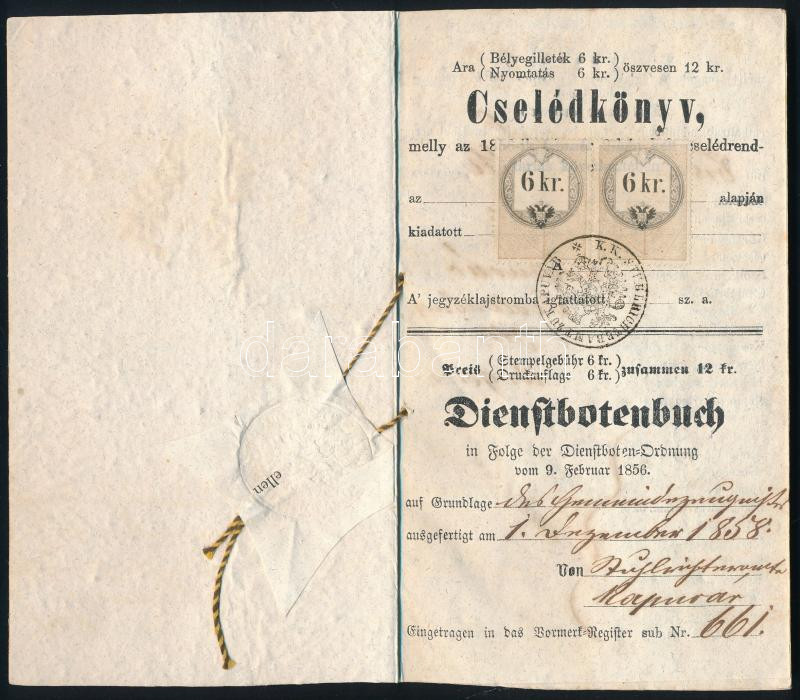 Ara (Bélyegilleték 6 kr.) öszvesen 12 kr.
(Nyomtatás 6 kr.)
Cselédkönyv,
melly az 18 cselédrend-
6 kr. 6 kr.
az alapján
kiadatott
K. K. STUHLRICHTERAMT ZU KAPUVÁR
A' jegyzéklajstromba igtattatott sz. a.
Preis (Stempelgebühr 6 kr.) zusammen 12 kr.
(Druckauflage 6 kr.)
Dienstbotenbuch
in Folge der Dienstboten-Ordnung
vom 9. Februar 1856.
auf Grundlage des Gemeindezeugnisses
ausgefertigt am 1. Dezember 1858.
Von Stuhlrichteramte
Kapuvar
Eingetragen in das Vormerk-Register sub Nr. 661.
ellen
darabanth